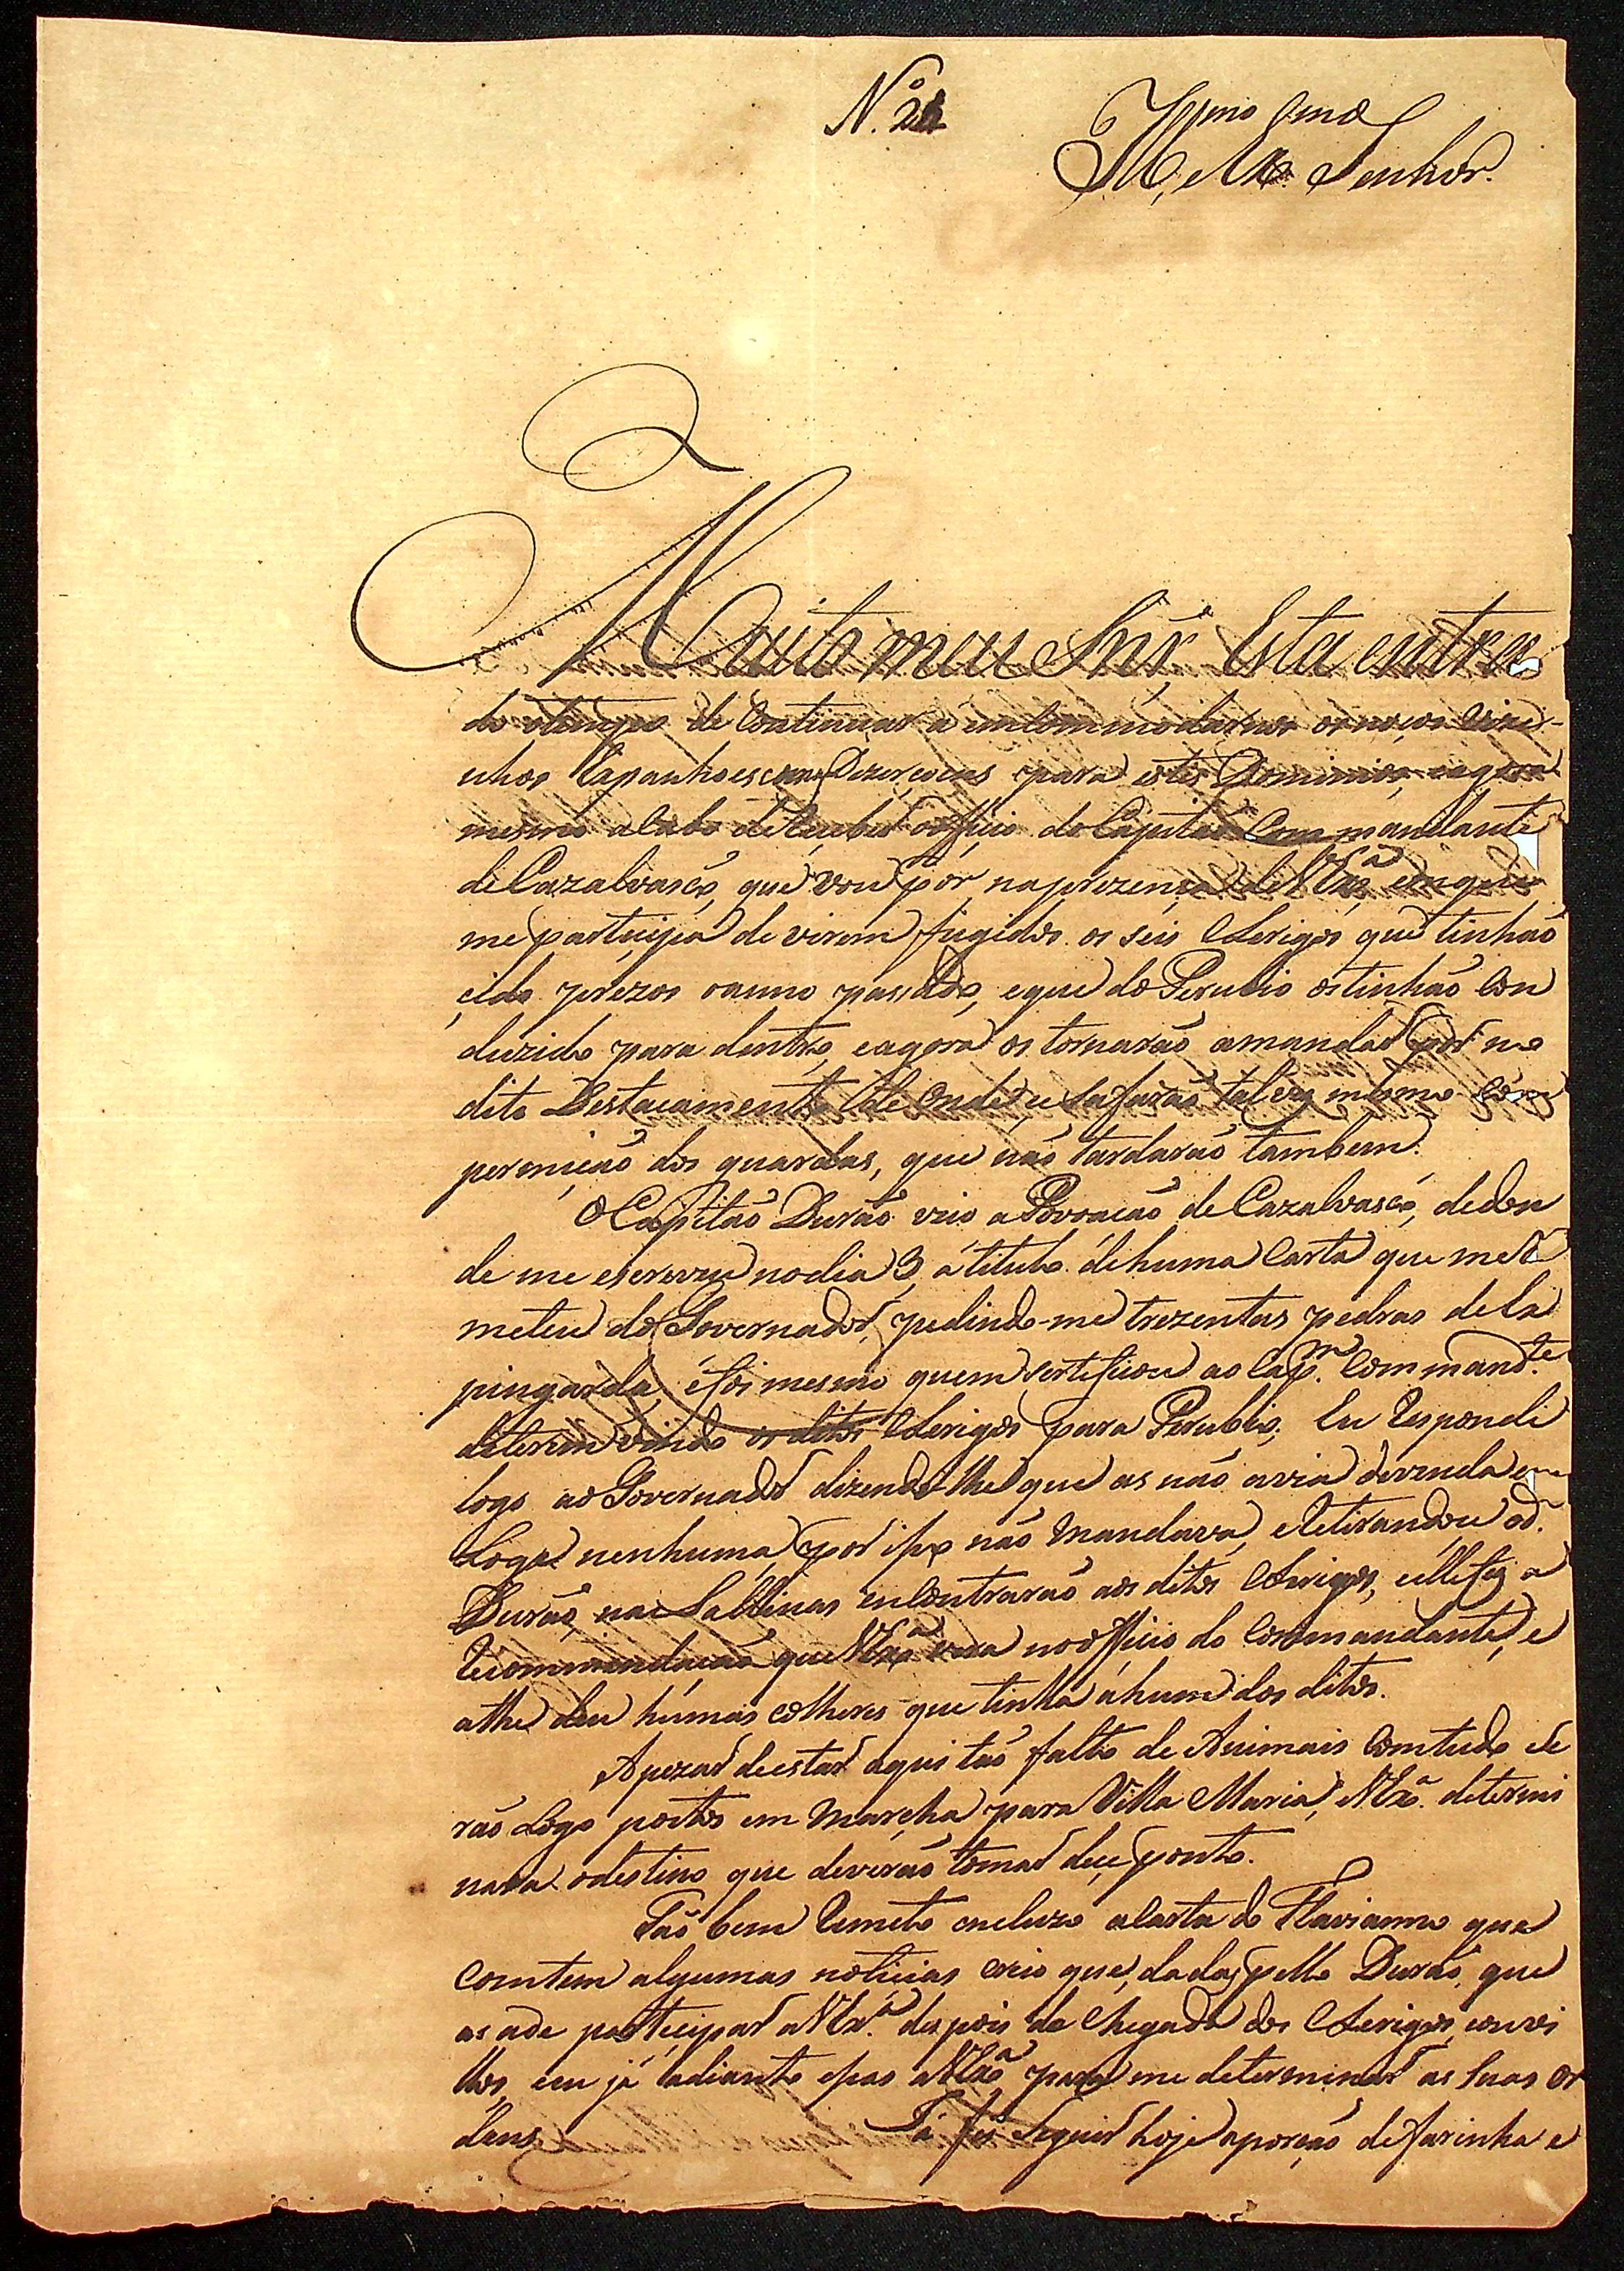 N.º 21
Ill.mo e Ex.mo Senhor.
Muito meu Snr. Esta entra
do otempo de Continuar a emcommodarnos os noços Vizi-
nhos Espanhoes com Dezerçoens para estes Dominios, eagora
mesmo acabo de receber oofficio do Capitaõ Commandante
de Cazalvasco, que vou pôr na prezença de V. Ex.ª emque
me participa de virem fugidos os seis Clerigos que tinhaõ
cido prezos oanno passado, eque do Perubio ostinhaõ Con
duzido para dentro, eagora os tornaraõ amandar por no
dito Destacamento de Onde se Safaraõ talvez mesmo Com
permiçaõ dos guardas, que naõ tardaraõ tambem.
O Capitaõ Duraõ veio a Povoaçaõ de Cazalvasco, dedon
de me escreveu nodia 3 átitulo dehuma Carta que me re
meteu do Governador, pedindo-me trezentas pedras de Es
pingarda, éfoi mesmo quem certeficou ao Cap.m Command.te
deterem vindo os ditos Clerigos para Perubio; Eu Respondi
logo ao Governador dizendo-lhe que as naõ avia devenda em
Loga nenhuma, por iso naõ Mandava, eRetirandose od.º
Duraõ, nas Sallinas encontraraõ aos ditos Clerigos, elle fez a
Recommendaçaõ que V. Ex.ª verá nooficio do Commandante, e
athe deu húmas colheres que tinha áhum dos ditos.
Apezar deestar aqui taõ falto de Animais Comtudo se
raõ Logo postos em Marcha para Villa Maria, V. Ex.ª determi
nara odestino que deveraõ tomar dece ponto.
Taõ bem Remeto incluzo aCarta do Flavianno que
Comtem algumas noticias creio que dadas pello Duraõ, que
as ade participar a V. Ex.ª depois da Chegada dos Clerigos, eouvi
llos, eeu já adianto epas a V. Ex.ª para me determinar as Suas Or
dens. Ja fis Seguir hoje aporçaõ de farinha e